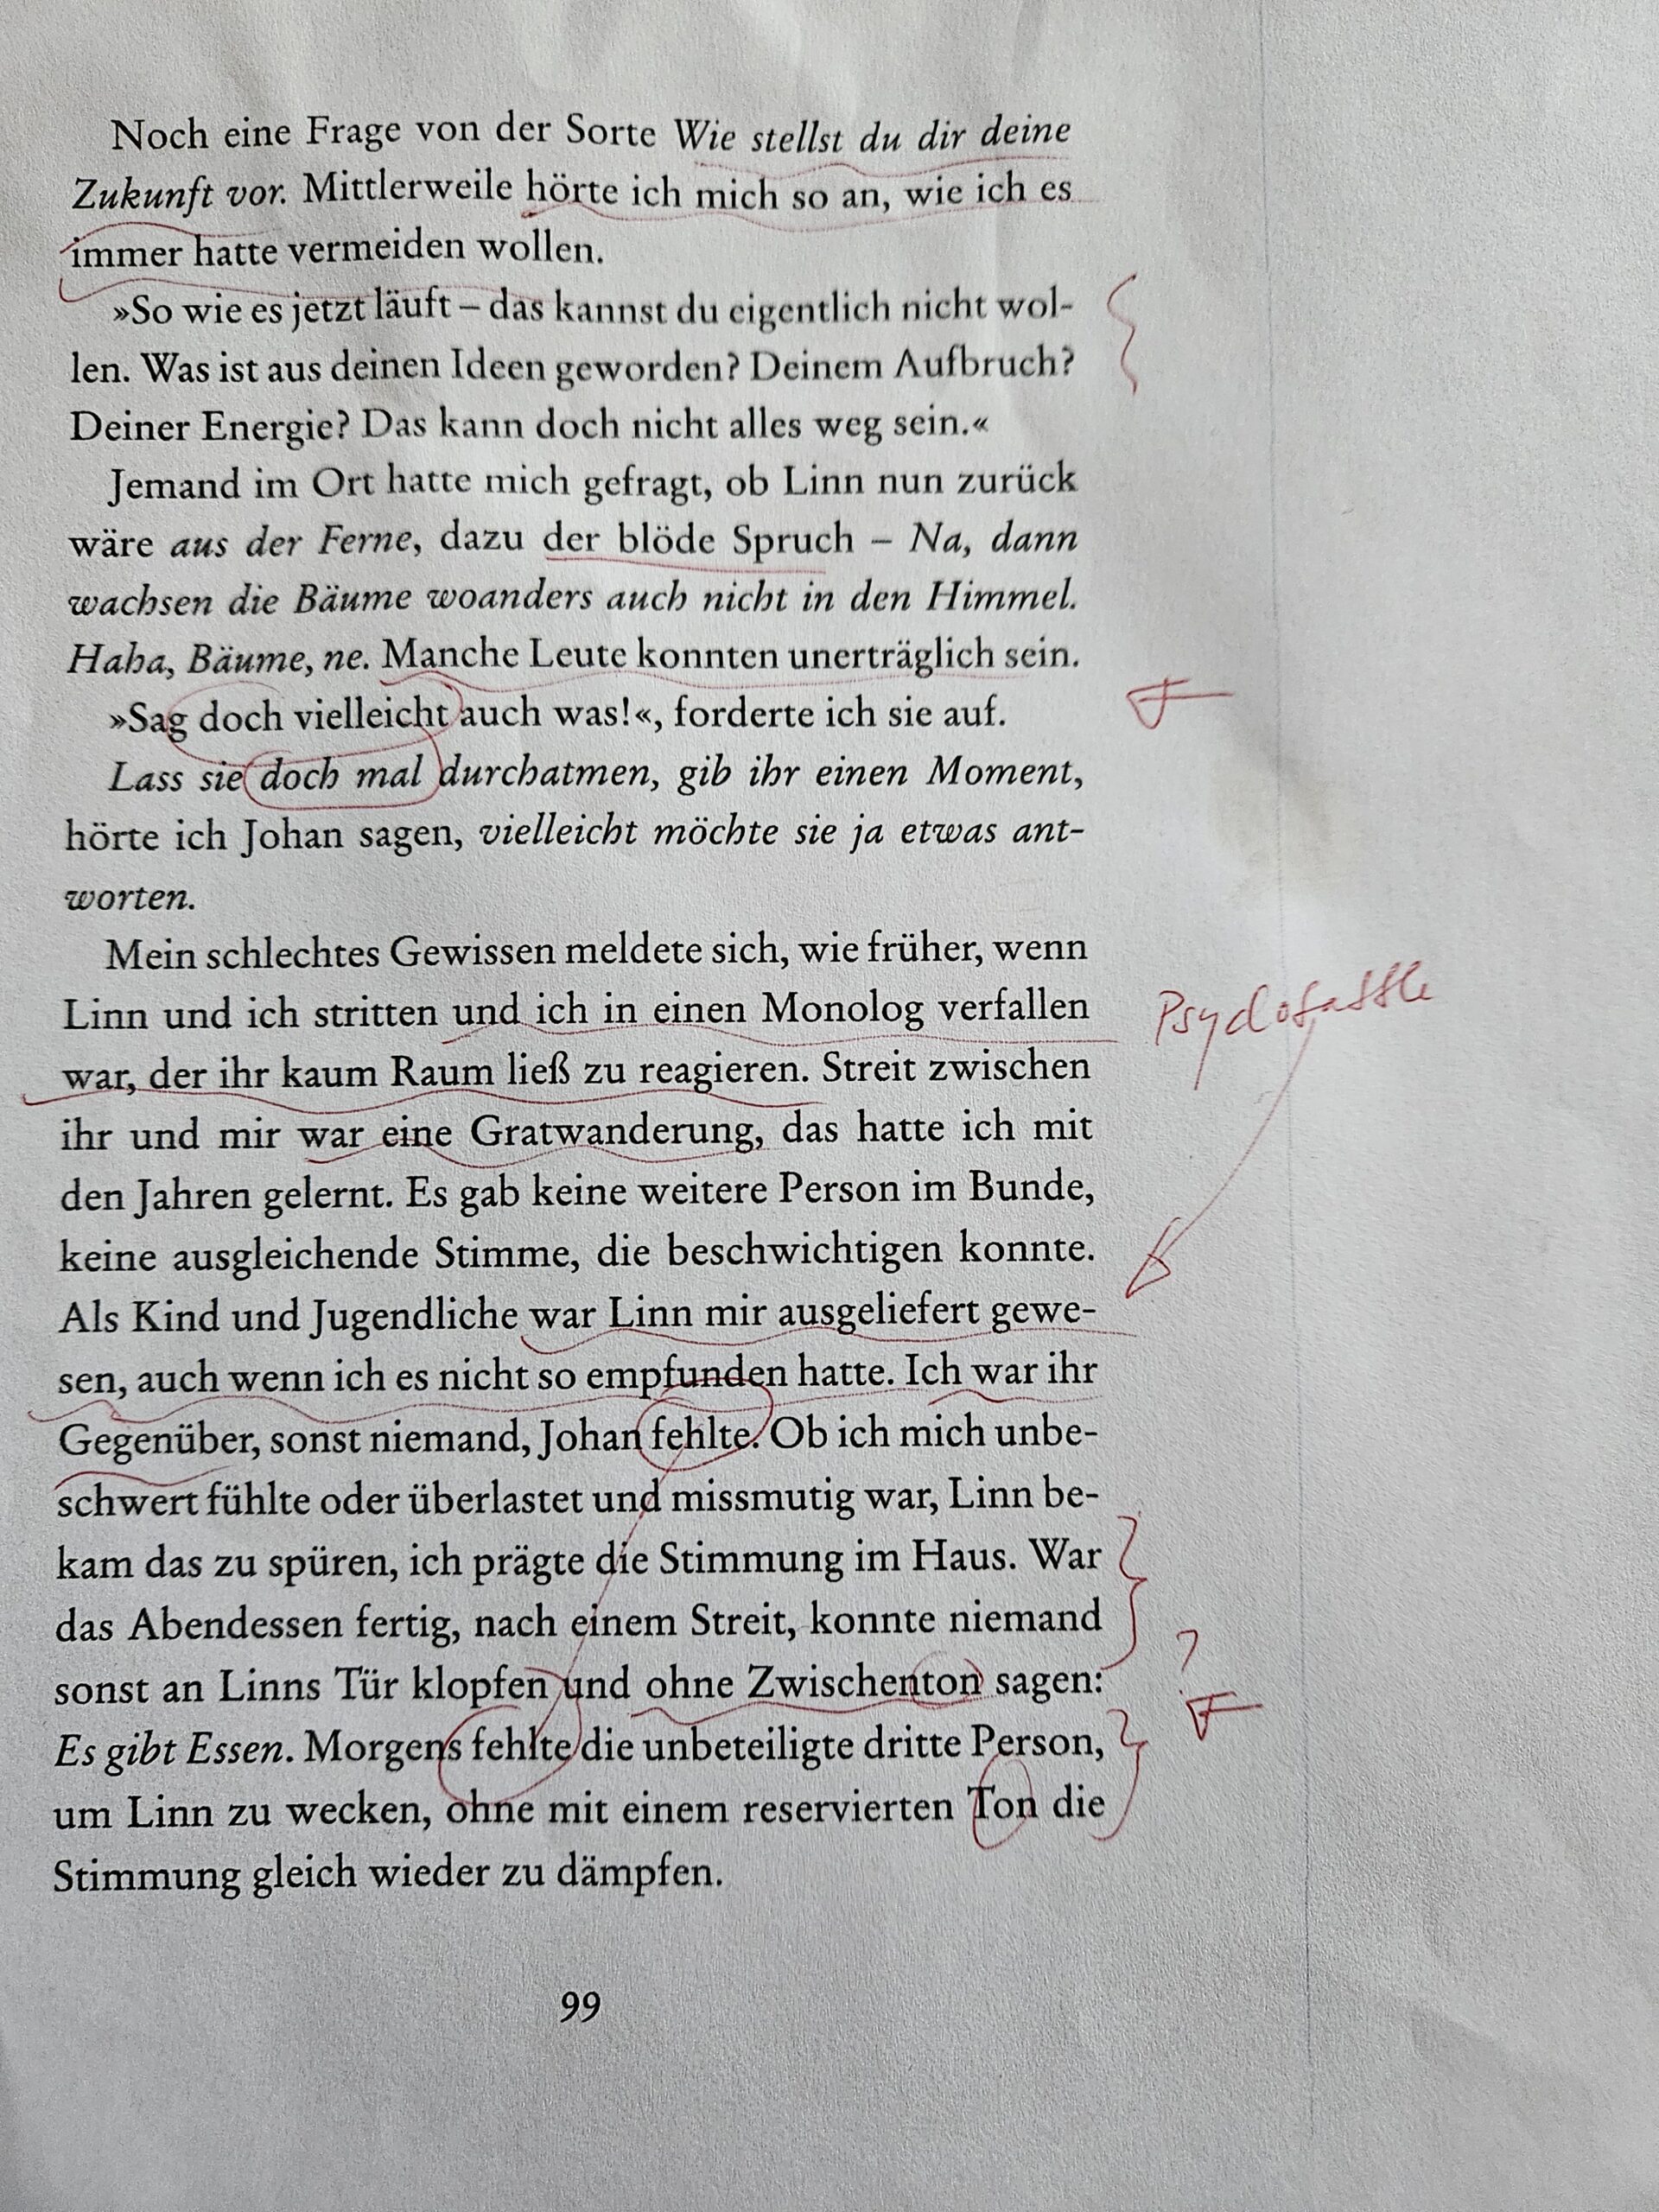 Noch eine Frage von der Sorte Wie stellst du dir deine
Zukunft vor. Mittlerweile hörte ich mich so an, wie ich es
immer hatte vermeiden wollen.
»So wie es jetzt läuft – das kannst du eigentlich nicht wol-
len. Was ist aus deinen Ideen geworden? Deinem Aufbruch?
Deiner Energie? Das kann doch nicht alles weg sein.«
Jemand im Ort hatte mich gefragt, ob Linn nun zurück
wäre aus der Ferne, dazu der blöde Spruch – Na, dann
wachsen die Bäume woanders auch nicht in den Himmel.
Haha, Bäume, ne. Manche Leute konnten unerträglich sein.
»Sag doch vielleicht auch was!«, forderte ich sie auf.
Lass sie doch mal durchatmen, gib ihr einen Moment,
hörte ich Johan sagen, vielleicht möchte sie ja etwas ant-
worten.
Mein schlechtes Gewissen meldete sich, wie früher, wenn
Linn und ich stritten und ich in einen Monolog verfallen
war, der ihr kaum Raum ließ zu reagieren. Streit zwischen
ihr und mir war eine Gratwanderung, das hatte ich mit
den Jahren gelernt. Es gab keine weitere Person im Bunde,
keine ausgleichende Stimme, die beschwichtigen konnte.
Als Kind und Jugendliche war Linn mir ausgeliefert gewe-
sen, auch wenn ich es nicht so empfunden hatte. Ich war ihr
Gegenüber, sonst niemand, Johan fehlte. Ob ich mich unbe-
schwert fühlte oder überlastet und missmutig war, Linn be-
kam das zu spüren, ich prägte die Stimmung im Haus. War
das Abendessen fertig, nach einem Streit, konnte niemand
sonst an Linns Tür klopfen und ohne Zwischenton sagen:
?
Es gibt Essen. Morgens fehlte die unbeteiligte dritte Person,
um Linn zu wecken, ohne mit einem reservierten Ton die
Stimmung gleich wieder zu dämpfen.
99